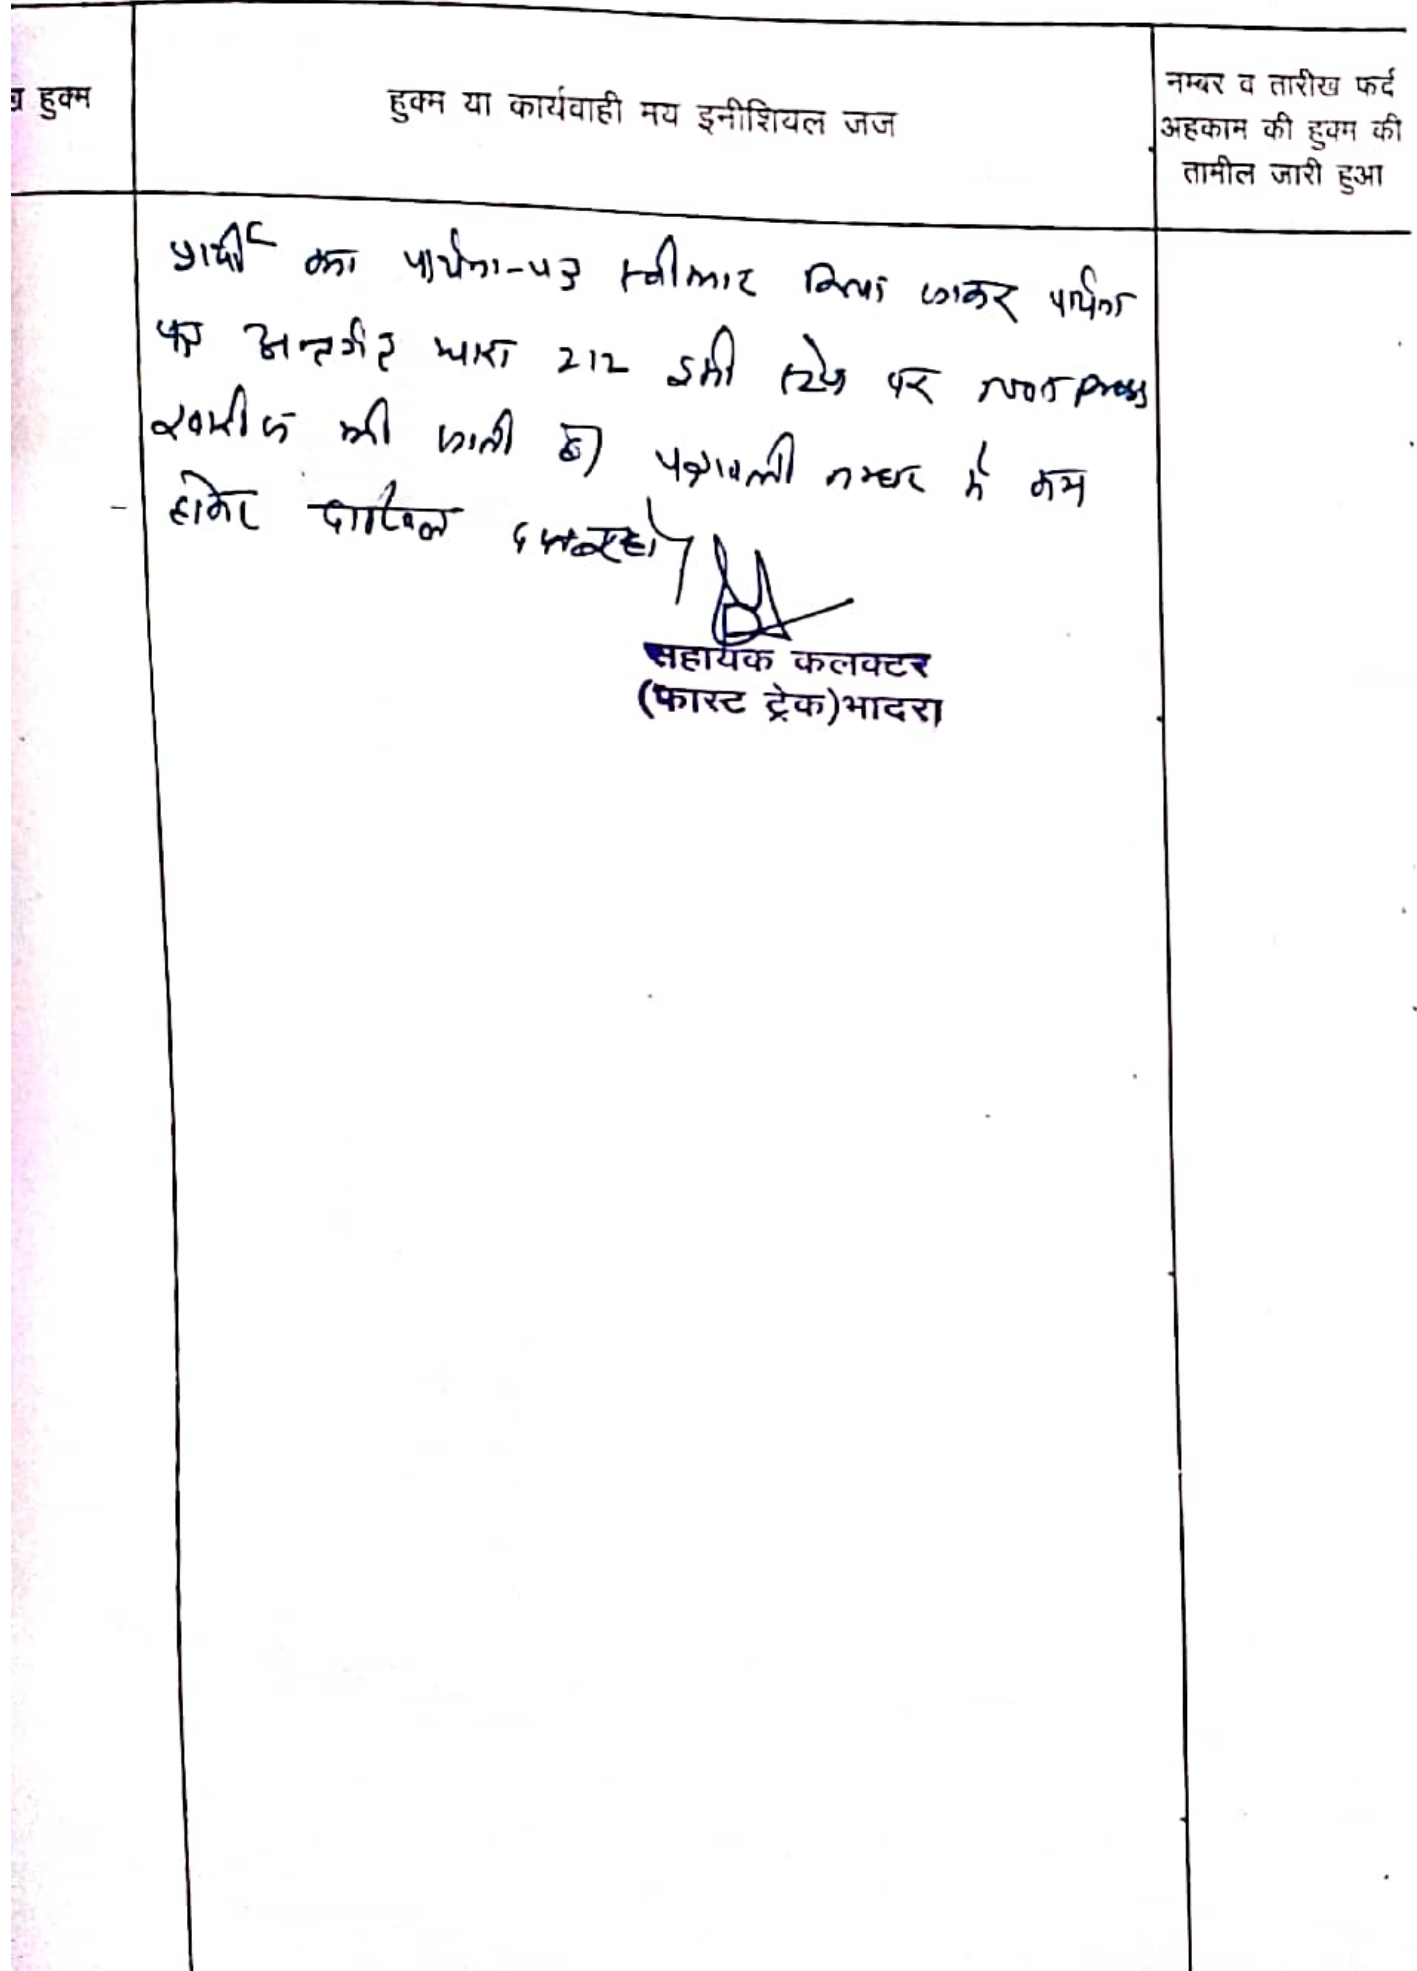 हुक्म
हुक्म या कार्यवाही मय इनीशियल जज
नम्बर व तारीख फर्द
अहकाम की हुक्म की
तामील जारी हुआ
प्रार्थी का प्रार्थना-पत्र स्वीकार किया जाकर प्रार्थना
पत्र अन्तर्गत धारा 212 इसी स्टेज पर not press
खारीज की जाती है। पत्रावली नम्बर से कम
होकर दाखिल दफ्तर हो।
सहायक कलक्टर
(फास्ट ट्रेक)भादरा